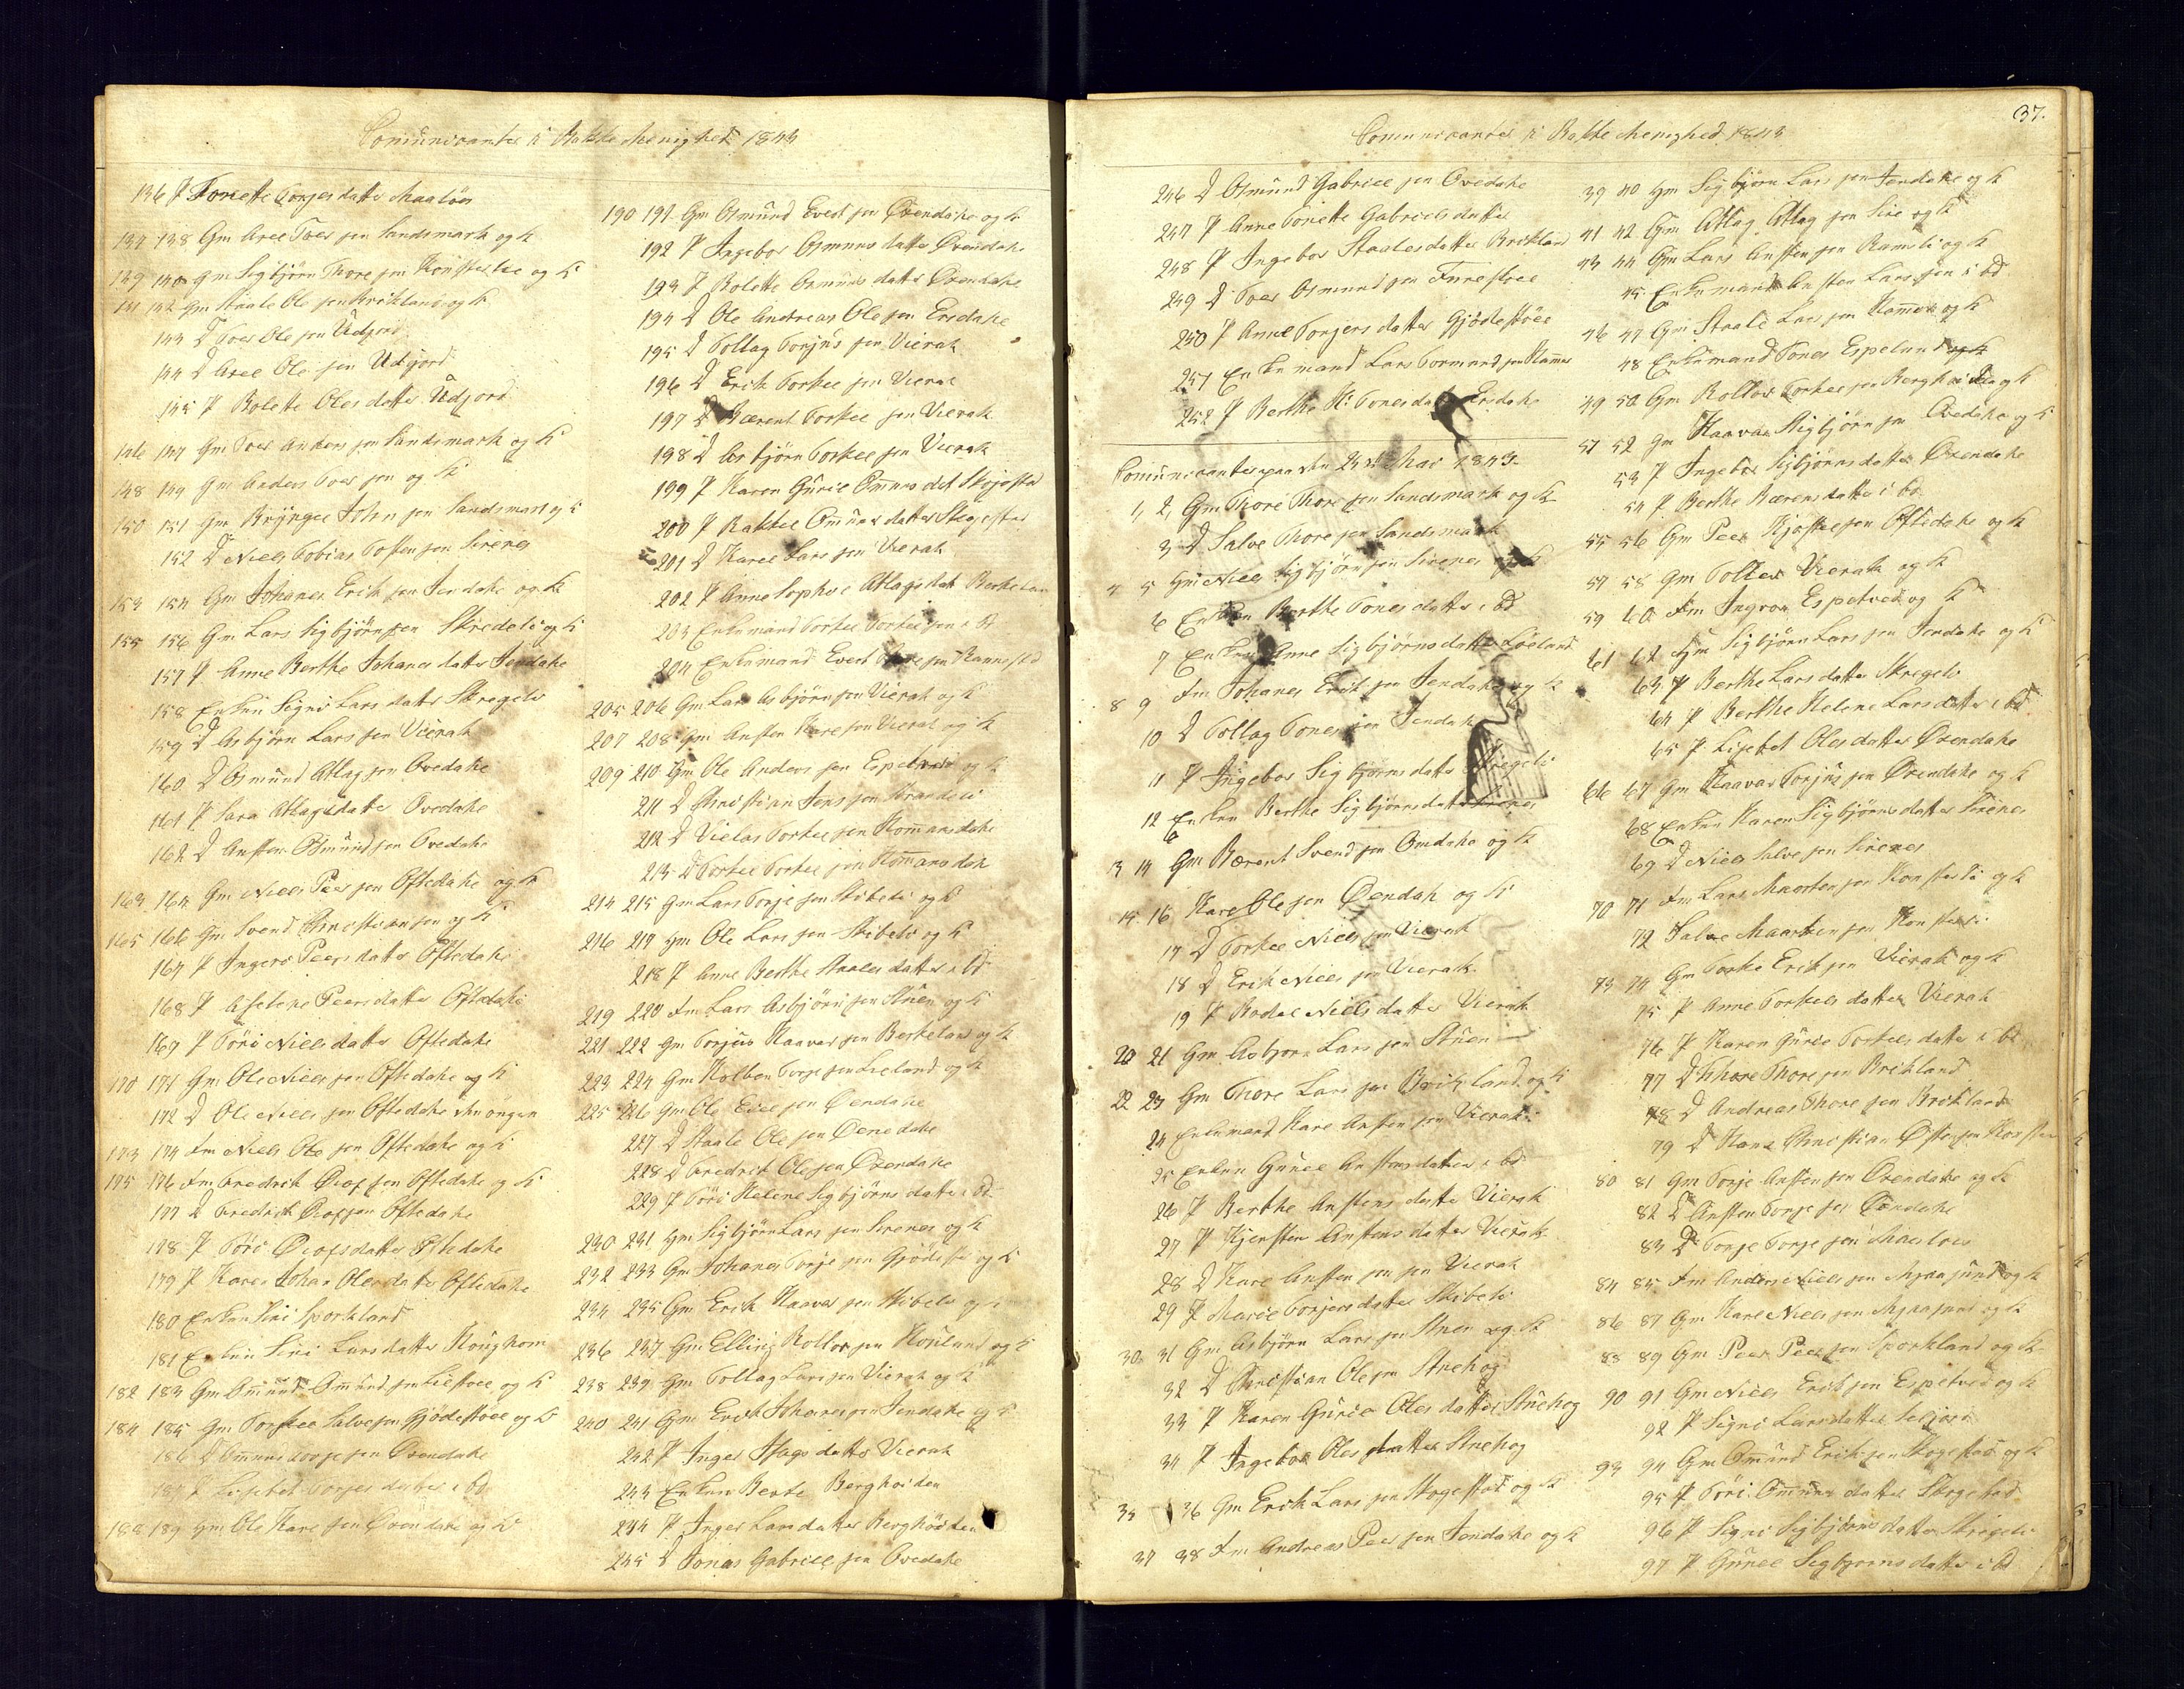 Comunicanter i Bakke Menighed 1843
136 P Tonette Torjesdatter Maaløe
137 138 Gm Areel Tore sen Sandsmark og K
139 140 Gm Sigbjørn Thore sen og K
141 142 Gm Staale Ole sen Birkeland og K
143 D Tore Ole sen Udjord
144 D Areel Ole sen Udjord
145 P Bolette Olesdatter Udjord
146 147 Gm Tore Anders sen Sandsmark og K
148 149 Gm Anders Tore sen og K
150 151 Gm Brynjel John sen Sandsmark og K
152 D Niels Tobias Tosten sen Sirenes
153 154 Gm Johanes Erik sen Jendahe og K
155 156 Gm Lars Sigbjørn sen Skredeli og K
157 P Anne Berthe Johanes datter Jendahe
158 Enken Signi Lars datter Skregeli
159 D Asbjørn Lars sen Vierak
160 D Osmund Atlag sen Ovedahe
161 P Sara Atlagsdatter Ovedahe
162 D Ansten Osmund sen Ovedahe
163 164 Gm Niels Peer sen Oftedahe og K
165 166 Gm Svend Christian sen og K
167 P Ingeri Peers datter Oftedahe
168 P Peersdatter Oftedahe
169 P Tøri Niels datter Oftedahe
170 171 Gm Ole Niels sen Oftedahe og K
172 D Ole Niels sen Oftedahe den yngre
173 174 Fm Niels Ole sen Oftedahe og K
175 176 Fm Fredrik Oles sen Oftedahe og K
177 D Fredrik sen Oftedahe
178 P Tøri datter Oftedahe
179 P Karen Johan Olesdatter Oftedahe
180 Enken Siri Sporkland
181 Enken Siri Larsdatter Koughom
182 183 Gm Omund Omund sen og K
184 185 Gm Torkel Salve sen Gjødestøl og K
186 D Omund Torje sen Øvendahe
187 P Lisebet Torjes datter i bd
188 189 Gm Ole Kare sen Øvendahe og K
190 191 Gm Osmund Evert sen Øvendahe og K
192 P Ingebor Osmunds datter Øvendahe
193 P Bolette Osmunds datter Øvendahe
194 D Ole Andreas Ole sen Ersdahe
195 D Tollag Torjus sen Vierak
196 D Erik Torkel sen Vierak
197 D Bærent Torkel sen Vierak
198 D Asbjørn Torkel sen Vierak
199 P Karen Gurie Omunds dat Skegestad
200 P Rakkel Omunds datter Skegestad
201 D Kareel Lars sen Vierak
202 P Anne Sophie Atlagsdat Berkeland
203 Enkemand Torkel Torkel sen i bd
204 Enkemand Evert sen
205 206 Gm Lars Asbjørn sen Vierak og K
207 208 Gm Ansten Kare sen Vierak og K
209 210 Gm Ole Anders sen Espetveit og K
211 D Christian Jens sen Strandeli
212 D Torkel sen Kommansdahe
213 D Torkel Torkel sen Kommansdahe
214 215 Gm Lars Torje sen Skibeli og K
216 217 Gm Ole Lars sen Skibeli og K
218 P Anne Berthe Staales datter i bd
219 220 Fm Lars Asbjørn sen Stuen og K
221 222 Gm Torjus Haaver sen Berkeland og K
223 224 Gm Kolben Torje sen Lieland og K
225 226 Gm Ole sen Øendahe
227 D Staale Ole sen Øvendahe
228 D Fredrik Ole sen Øvendahe
229 P Tøri Helene Sigbjørns datter i bd
230 231 Gm Sigbjørn Lars sen Sirenes og K
232 233 Gm Johanes Torje sen Gjødestøl og K
234 235 Gm Erik Haaver sen Skibeli og K
236 237 Gm Elling Rollov sen Houland og K
238 239 Gm Tollag Lars sen Vierak og K
240 241 Gm Erik Johanes sen Jendahe og K
242 P Inger datter Vierak
243 Enken Berte Berghøiden
244 P Inger Larsdatter Berghøiden
245 D Jonas Gabriel sen Ovedahe
37.
Comunicanter i Bakke Menighed 1843
246 D Osmund Gabriel sen Ovedahe
247 P Anne Tonette Gabriels datter
248 P Ingebor Staalesdatter Birkeland
249 D Tore Osmund sen
250 P Anne Torjers datter Gjødestøl
251 Enkemand Lars Tormund sen
252 P Berthe K: Tones datter Ersdahe
Comunicanter paa den 25de Mai 1843.
1, 2, Gm Thore Thore sen Sandsmark og K
3 D Salve Thore sen Sandsmark
4 5 Gm Niels Sigbjørn sen Sirenes og K
6 Enken Berthe Tones datter i bd
7 Enken Anne Sigbjørnsdatter
8 9 Fm Johanes Erik sen Jendahe og K
10 D Tollag Tones sen Jendahe
11 P Ingebor Sigbjørnsdatter Skregeli
12 Enken Berthe Sigbjørnsdatter Sirenes
13 14 Gm Bærent Svend sen Omdahe og K
15. 16 Kare Ole sen Øendah og K
17 D Torkel Niels sen Vierak
18 D Erik Niels sen Vierak
19 P Bodel Niels datter Vierak
20 21 Gm Asbjørn Lars sen Stuen
22 23 Gm Thore Lars sen Birkeland og K
24 Enkemand Kare Ansten sen Vierak
25 Enken Gunel Anstensdatter i bd
26 P Berthe Anstens datter Vierak
27 P Kjersten Anstens datter Vierak
28 D Kare Ansten sen Vierak
29 P Marie Torjersdatter Skibeli
30 31 Gm Asbjørn Lars sen Stuen og K
32 D Christian Ole sen Stuehog
33 P Karen Gurie Oles datter Stuehog
34 P Ingebor Oles datter Stuehog
35 36 Gm Erik Lars sen Skogestad og K
37 38 Fm Andreas Peer sen Jendahe og K
39 40 Gm Sigbjørn Lars sen Jendahe og K
41 42 Gm Atlag Atlag sen Sire og K
43 44 Gm Lars Ansten sen Ramsli og K
45 Enkemand Ansten Lars sen i bd
46 47 Gm Staale Lars sen og K
48 Enkemand Tones Espelund
49 50 Gm Rollov Torkel sen Berghøiden og K
51 52 Gm Haaver Sigbjørn sen Ovedahe og K
53 P Ingebor Sigbjørnsdatter Øvendahe
54 P Berthe Bærensdatter i bd
55 56 Gm Peer sen Oftedahe og K
57 58 Gm Tollev Vierak og K
59 60 Fm Ingvar Espetved og K
61 62 Gm Sigbjørn Lars sen Jendahe og K
63 P Berthe Larsdatter Skregeli
64 P Berthe Helene Larsdatter i bd
65 P Lisebet Olesdatter Øvendahe
66 67 Gm Haaver Torjus sen Øvendahe og K
68 Enken Karen Sigbjørnsdatter Sirenes
69 D Niels Salve sen Sirenes
70 71 Fm Lars Maarten sen og K
72 Salve Maarten sen
73 74 Gm Torkel Erik sen Vierak og K
75 P Anne Torkels datter Vierak
76 P Karen Gurie Torkels datter i bd
77 D Thore Thore sen Birkland
78 D Andreas Thore sen Birkland
79 D Hans Christian
80 81 Gm Torje Ansten sen Øvendahe og K
82 D Ansten Torje sen Øvendahe
83 D Torje Torje sen
84 85 Fm Anders Niels sen Mjaasund og K
86 87 Gm Kare Niels sen Mjaasund og K
88 89 Gm Peer Peer sen Sporkland og K
90 91 Gm Niels Erik sen Espetved og K
92 P Signi Larsdatter
93 94 Gm Omund Erik sen Skogestad og K
95 P Tøri Omunds datter Skogestad
96 P Signi Sigbjørns datter Skregeli
97 P Gunel Sigbjørnsdatter i bd